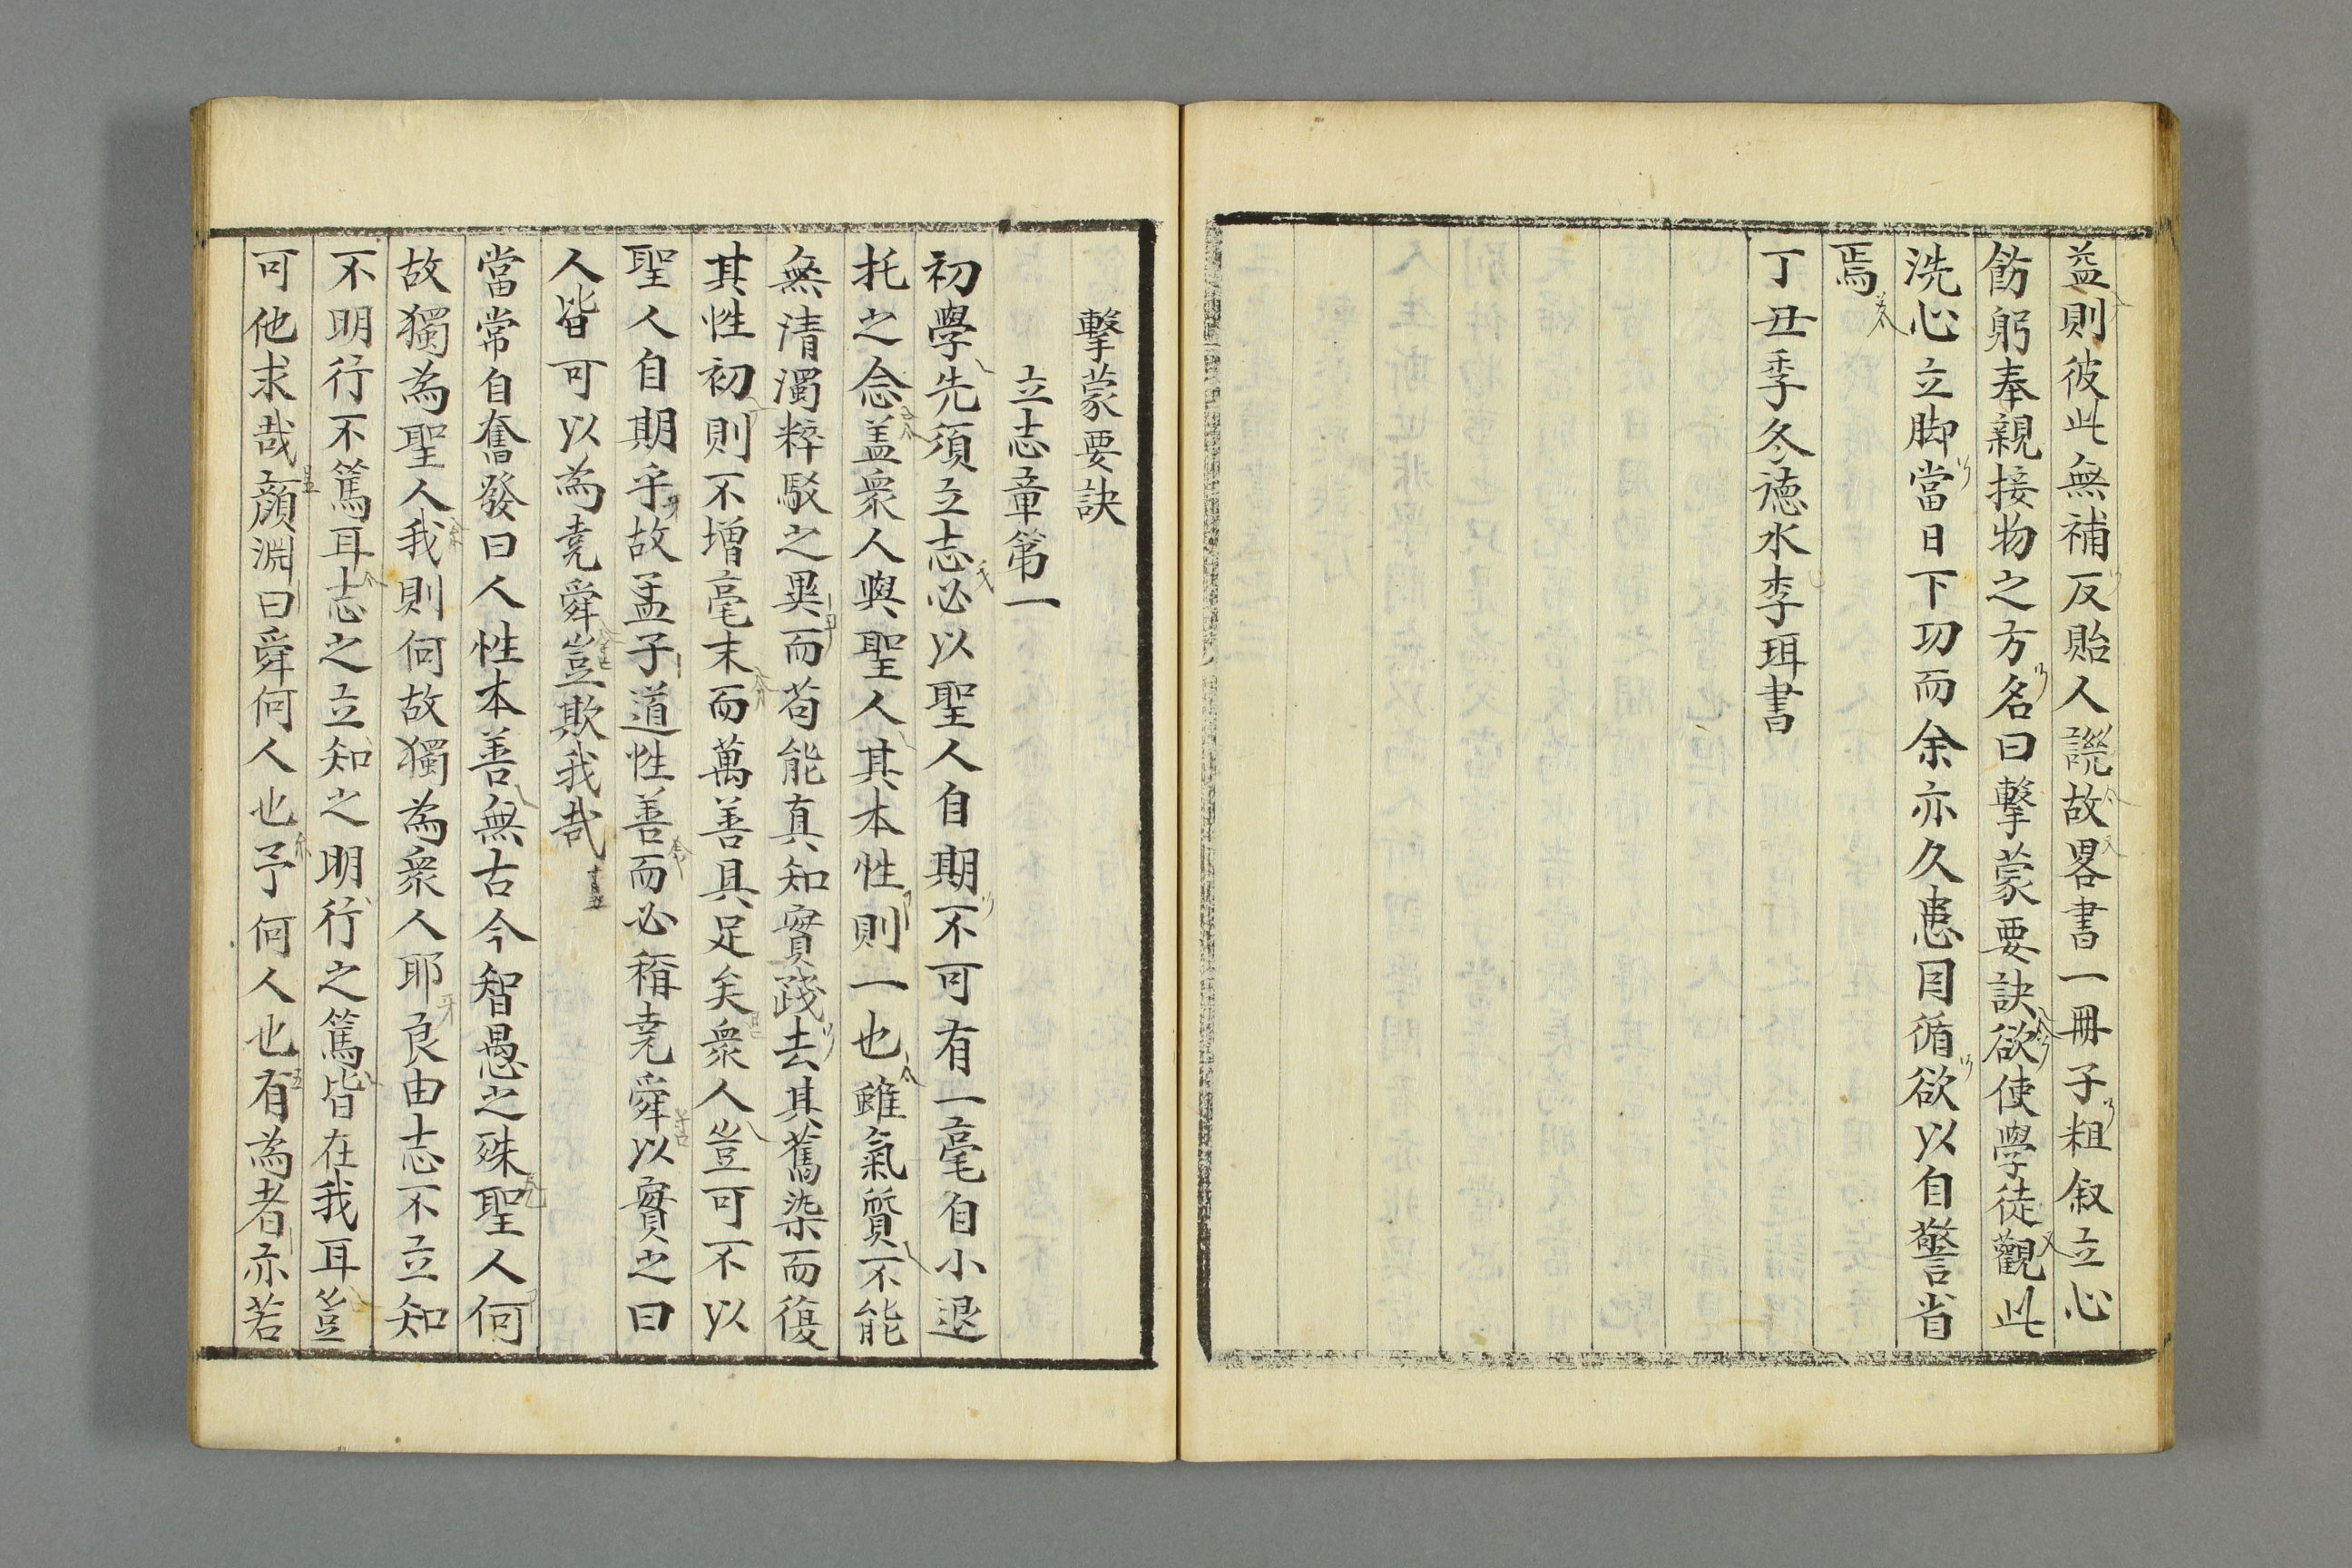 益則彼此無補反貽人譏故畧書一冊子粗叙立心
飭躬奉親接物之方名曰擊蒙要訣欲使學徒觀此
洗心立脚當日下功而余亦久患因循欲以自警省
焉
丁丑季冬德水李珥書
擊蒙要訣
立志章第一
初學先須立志必以聖人自期不可有一毫自小退
托之念盖衆人與聖人其本性則一也雖氣質不能
無清濁粹駁之異而苟能真知實踐去其舊染而復
其性初則不增毫末而萬善具足矣衆人豈可不以
聖人自期乎故孟子道性善而必稱堯舜以實之曰
人皆可以為堯舜豈欺我哉
當常自奮發曰人性本善無古今智愚之殊聖人何
故獨為聖人我則何故獨為衆人耶良由志不立知
不明行不篤耳志之立知之明行之篤皆在我耳豈
可他求哉顔淵曰舜何人也予何人也有為者亦若